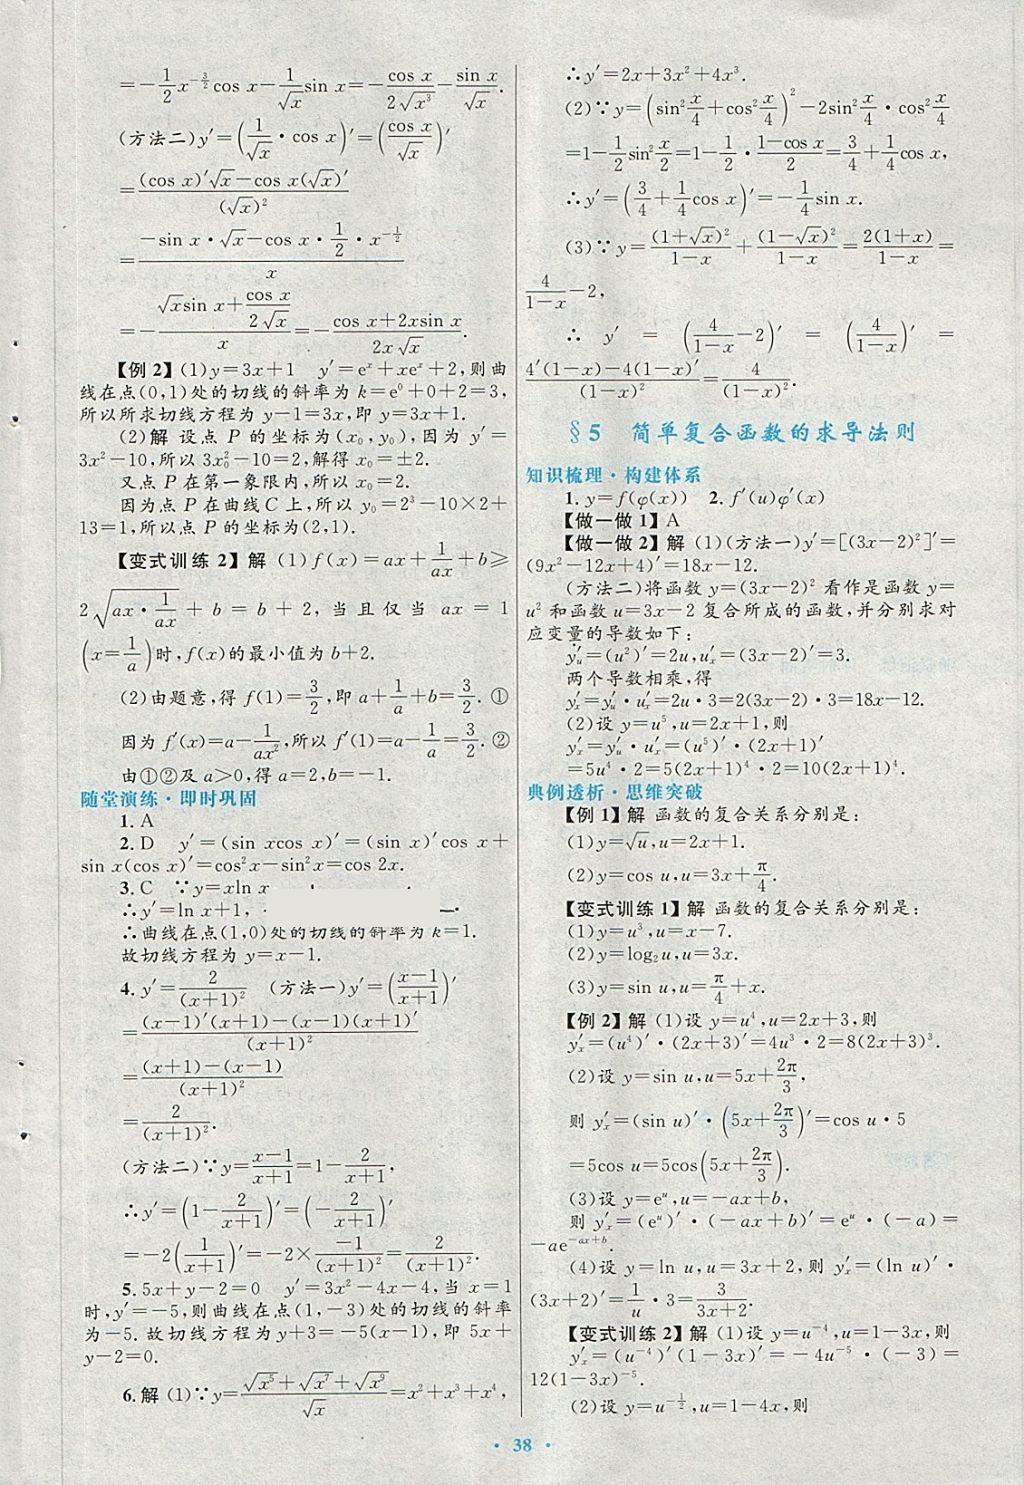 =−1/2 x^(−3/2) cos x − 1/√x sin x = − cos x/(2√x³) − sin x/√x.
(方法二)y′=(1/√x · cos x)′=(cos x/√x)′
=((cos x)′√x−cos x(√x)′)/(√x)²
=(−sin x·√x−cos x·1/2·x^(−1/2))/x
=−(√x sin x+cos x/(2√x))/x=−(cos x+2xsin x)/(2x√x).
【例 2】(1)y=3x+1 y′=eˣ+xeˣ+2,则曲
线在点(0,1)处的切线的斜率为 k=e⁰+0+2=3,
所以所求切线方程为 y−1=3x,即 y=3x+1.
(2)解 设点 P 的坐标为(x₀,y₀),因为 y′=
3x²−10,所以 3x₀²−10=2,解得 x₀=±2.
又点 P 在第一象限内,所以 x₀=2.
因为点 P 在曲线 C 上,所以 y₀=2³−10×2+
13=1,所以点 P 的坐标为(2,1).
【变式训练 2】解 (1)f(x)=ax+1/(ax)+b≥
2√(ax·1/(ax))+b=b+2,当且仅当 ax=1
(x=1/a)时,f(x)的最小值为 b+2.
(2)由题意,得 f(1)=3/2,即 a+1/a+b=3/2.①
因为 f′(x)=a−1/(ax²),所以 f′(1)=a−1/a=3/2.②
由①②及 a>0,得 a=2,b=−1.
随堂演练·即时巩固
1. A
2. D y′=(sin xcos x)′=(sin x)′cos x+
sin x(cos x)′=cos²x−sin²x=cos 2x.
3. C ∵y=xln x
∴y′=ln x+1,
∴曲线在点(1,0)处的切线的斜率为 k=1.
故切线方程为 y=x−1.
4. y′=2/(x+1)² (方法一)y′=((x−1)/(x+1))′
=((x−1)′(x+1)−(x−1)(x+1)′)/(x+1)²
=((x+1)−(x−1))/(x+1)²
=2/(x+1)².
(方法二)∵y=(x−1)/(x+1)=1−2/(x+1),
∴y′=(1−2/(x+1))′=(−2/(x+1))′
=−2(1/(x+1))′=−2×−1/(x+1)²=2/(x+1)².
5. 5x+y−2=0 y′=3x²−4x−4,当 x=1
时,y′=−5,则曲线在点(1,−3)处的切线的斜率
为−5.故切线方程为 y+3=−5(x−1),即 5x+
y−2=0.
6. 解 (1)∵y=(√x⁵+√x⁷+√x⁹)/√x=x²+x³+x⁴,
∴y′=2x+3x²+4x³.
(2)∵y=(sin²x/4+cos²x/4)²−2sin²x/4·cos²x/4
=1−1/2 sin²x/2=1−1/2·(1−cos x)/2=3/4+1/4 cos x,
∴y′=(3/4+1/4 cos x)′=−1/4 sin x.
(3)∵y=(1+√x)²/(1−x)+(1−√x)²/(1−x)=2(1+x)/(1−x)=
4/(1−x)−2,
∴ y′ = (4/(1−x)−2)′ = (4/(1−x))′ =
(4′(1−x)−4(1−x)′)/(1−x)²=4/(1−x)².
§5 简单复合函数的求导法则
知识梳理·构建体系
1. y=f(φ(x)) 2. f′(u)φ′(x)
【做一做 1】A
【做一做 2】解 (1)(方法一)y′=[(3x−2)²]′=
(9x²−12x+4)′=18x−12.
(方法二)将函数 y=(3x−2)² 看作是函数 y=
u² 和函数 u=3x−2 复合所成的函数,并分别求对
应变量的导数如下:
y′ᵤ=(u²)′=2u,u′ₓ=(3x−2)′=3.
两个导数相乘,得
y′ₓ=y′ᵤ·u′ₓ=2u·3=2(3x−2)·3=18x−12.
(2)设 y=u⁵,u=2x+1,则
y′ₓ=y′ᵤ·u′ₓ=(u⁵)′·(2x+1)′
=5u⁴·2=5(2x+1)⁴·2=10(2x+1)⁴.
典例透析·思维突破
【例 1】解 函数的复合关系分别是:
(1)y=√u,u=2x+1.
(2)y=cos u,u=3x+π/4.
【变式训练 1】解 函数的复合关系分别是:
(1)y=u³,u=x−7.
(2)y=log₂u,u=3x.
(3)y=sin u,u=π/4+x.
【例 2】解 (1)设 y=u⁴,u=2x+3,则
y′ₓ=(u⁴)′·(2x+3)′=4u³·2=8(2x+3)³.
(2)设 y=sin u,u=5x+2π/3,
则 y′ₓ=(sin u)′·(5x+2π/3)′=cos u·5
=5cos u=5cos(5x+2π/3).
(3)设 y=eᵘ,u=−ax+b,
则 y′ₓ=(eᵘ)′·(−ax+b)′=eᵘ·(−a)=
−ae^(−ax+b).
(4)设 y=ln u,u=3x+2,则 y′ₓ=(ln u)′·
(3x+2)′=1/u·3=3/(3x+2).
【变式训练 2】解 (1)设 y=u⁻⁴,u=1−3x,则
y′ₓ=(u⁻⁴)′(1−3x)′=−4u⁻⁵·(−3)=
12(1−3x)⁻⁵.
(2)设 y=u^(−1/2),u=1−4x,则
· 38 ·